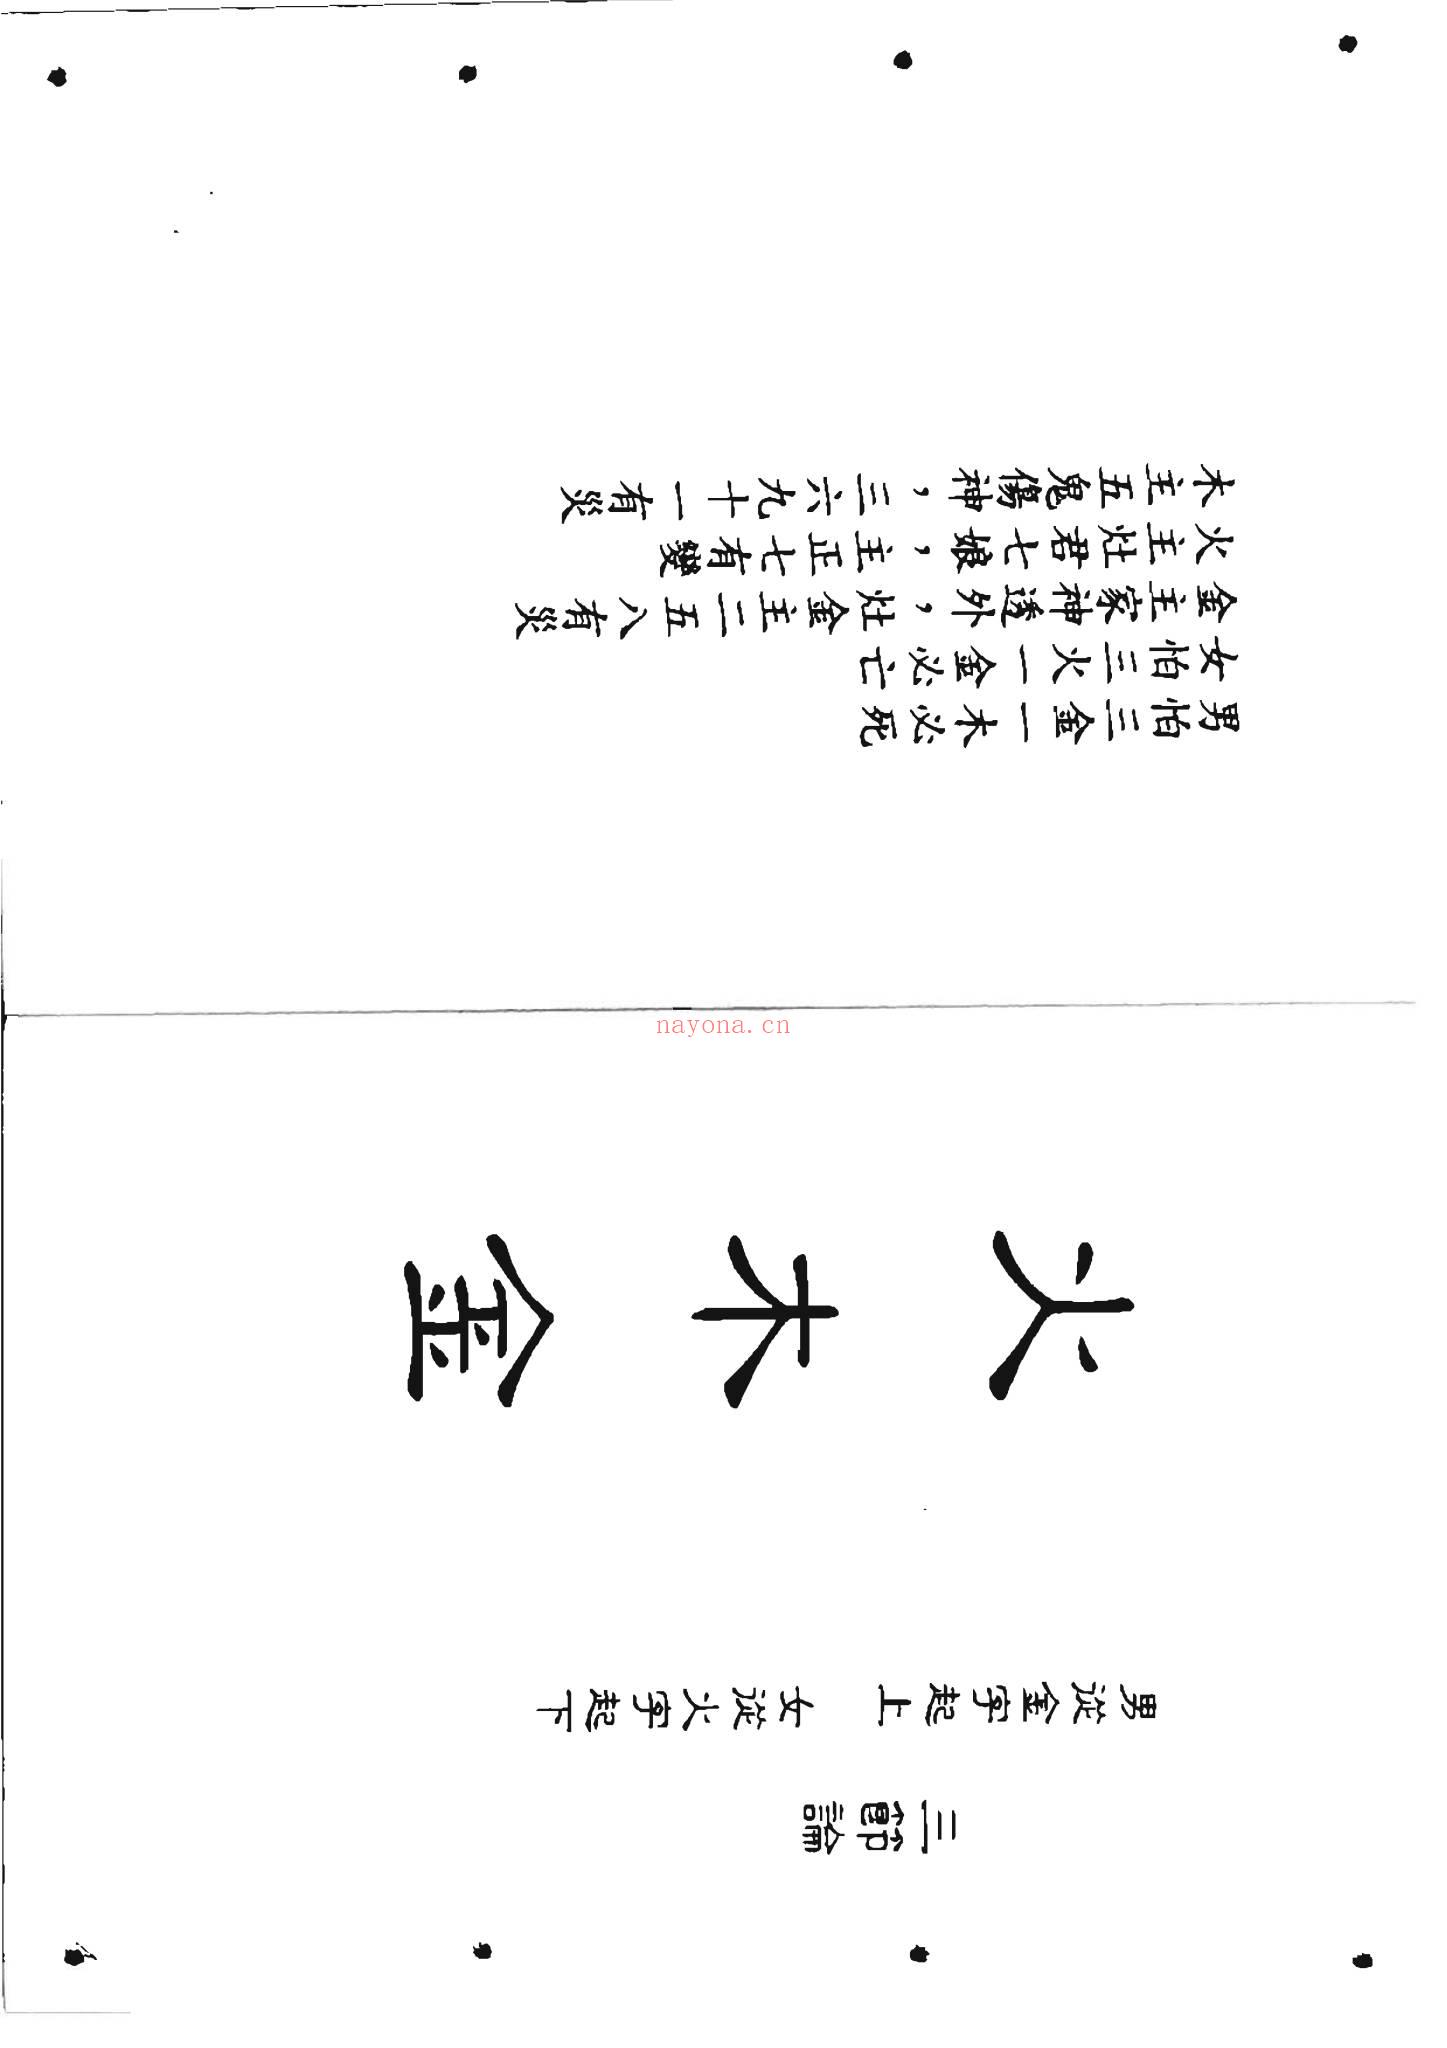 三節論
男從金字起上　女從火字起下
火　木　金
男怕三金一木必死
女怕三火一金必亡
金主家神透外，灶金主二五八有災
火主灶君七娘，主正七有變
木主五鬼傷神，三六九十一有災
nayona.cn